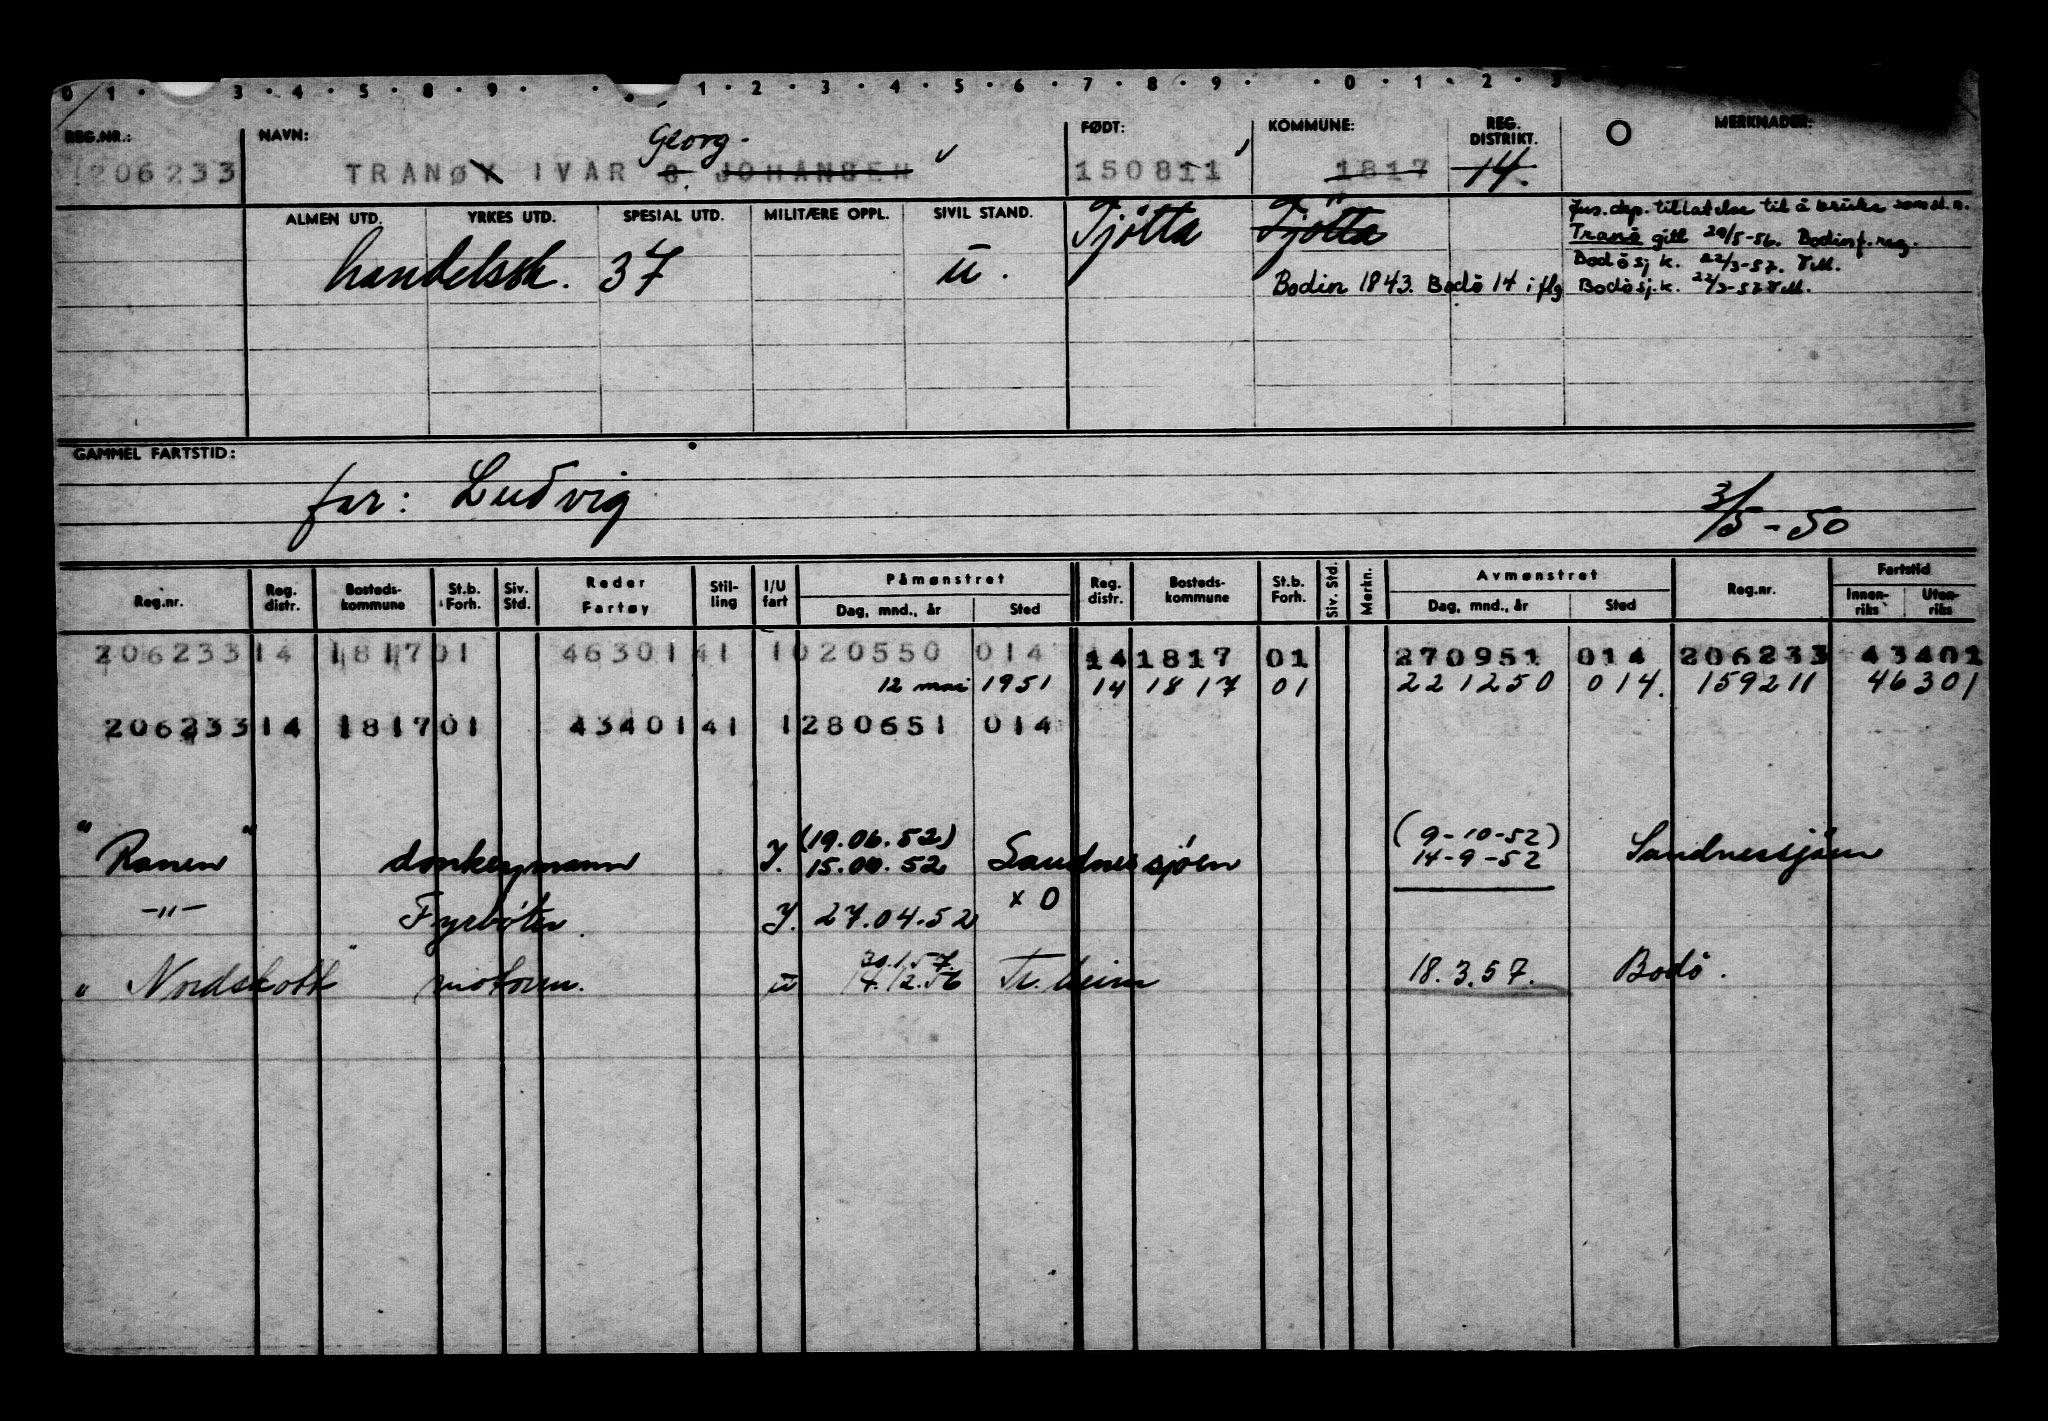 0 1 · 3 · 4 · 5 · 8 · 9 · · 1 · 2 · 3 · 4 · 5 · 6 · 7 · 8 · 9 · · 0 · 1 · 2 · 3
REG.NR.: NAVN: Georg. FØDT: KOMMUNE: REG. DISTRIKT. MERKNADER:
206233 TRANØY IVAR G. JOHANSEN 150811 1817 14.
ALMEN UTD. YRKES UTD. SPESIAL UTD. MILITÆRE OPPL. SIVIL STAND. Tjötta Tjötta Jus.dep. tillatelse til å bruke som sl.n.
Tranö gitt 29/5-56. Bodinf.reg.
handelssk. 37 u. Bodösj.k. 22/3-57.
Bodin 1843. Bodö 14 i flg Bodösj.k. 22/3-57
GAMMEL FARTSTID:
far: Ludvig 3/5-50
Reg.nr. Reg. distr. Bosteds- kommune St.b. Forh. Siv. Std. Reder Fartøy Stil- ling I/U fart Påmønstret Dag, mnd., år Sted Reg. distr. Bosteds- kommune St.b. Forh. Siv. Std. Merkn. Avmønstret Dag, mnd., år Sted Reg.nr. Fartstid Innen- riks Uten- riks
206233 14 1817 01 46301 41 1 020550 014 14 1817 01 270951 014 206233 43401
12 mai 1951 14 1817 01 221250 014. 159211 46301
206233 14 1817 01 43401 41 1 280651 014
(19.06.52) (9-10-52)
"Ranen" donkeymann I. 52 Sandnessjøen 14-9-52 Sandnessjöen
x O
-"- Fyrbøter. I. 27.04.52
30.1.57.
"Nordskott" motorm. u 14.12.56 Tr.heim 18.3.57. Bodö.